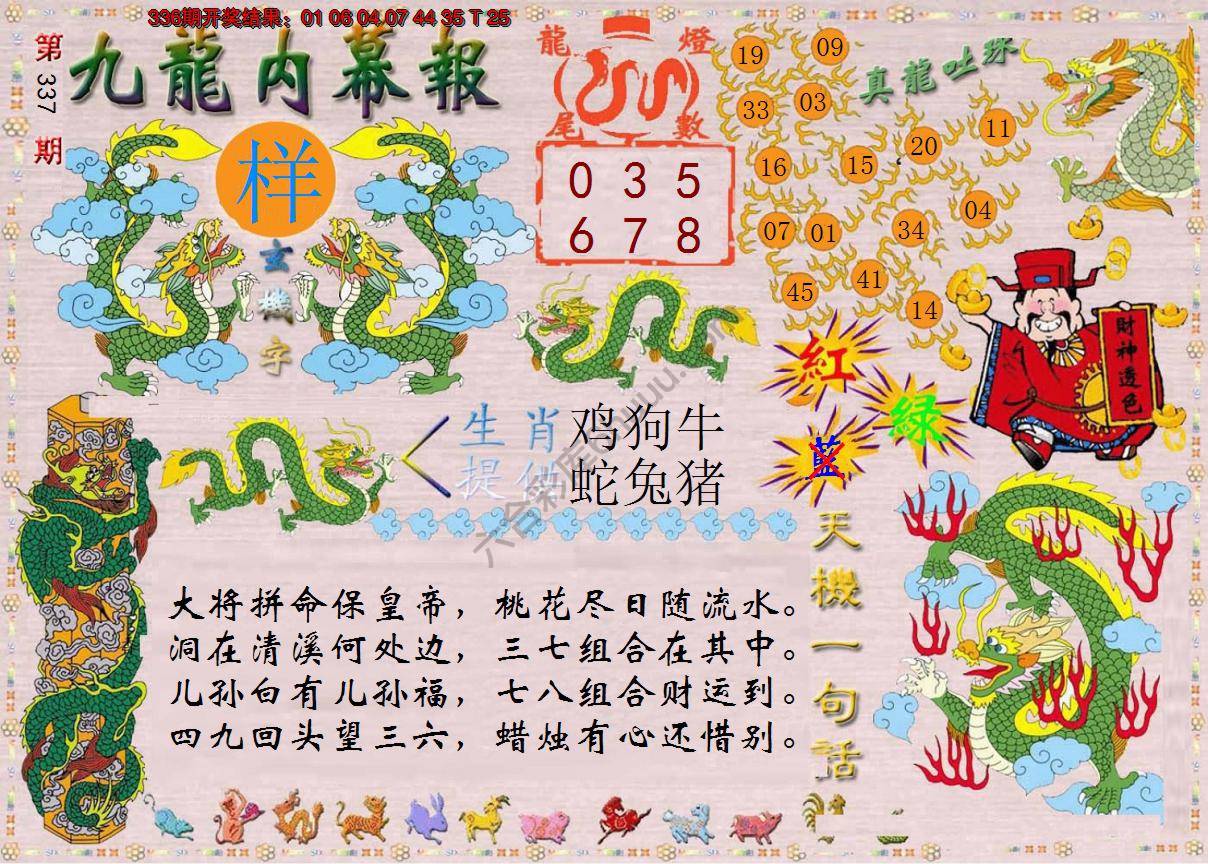 336期开奖结果：01 06 04 07 44 35 T 25
第
337
期
九龍内幕報
样
玄
機
字
龍 燈
尾 數
0 3 5
6 7 8
真龍吐珠
19
09
33
03
11
20
16
15
04
07
01
34
45
41
14
財神透色
紅
綠
藍
生肖 鸡狗牛
提供 蛇兔猪
天機一句話
大将拼命保皇帝，桃花尽日随流水。
洞在清溪何处边，三七组合在其中。
儿孙白有儿孙福，七八组合财运到。
四九回头望三六，蜡烛有心还惜别。